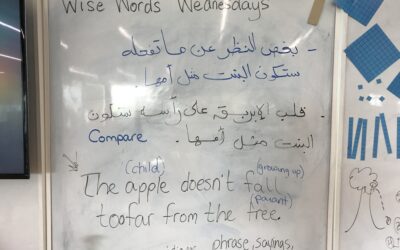 Wise Words Wednesdays
- بغض النظر عن ما تفعله
ستكون البنت مثل أمها.
- قلب الإبريق على رأسه ستكون
البنت مثل أمها.
Compare
(child) (growing up)
The apple doesn't fall
too far from the tree.
(parent)
phrase, sayings,